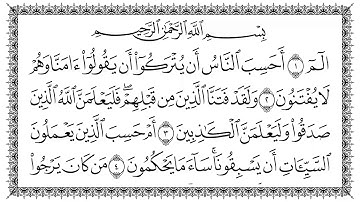 بِسْمِ ٱللَّهِ ٱلرَّحْمَٰنِ ٱلرَّحِيمِ
الٓمٓ ١ أَحَسِبَ ٱلنَّاسُ أَن يُتْرَكُوٓا۟ أَن يَقُولُوٓا۟ ءَامَنَّا وَهُمْ
لَا يُفْتَنُونَ ٢ وَلَقَدْ فَتَنَّا ٱلَّذِينَ مِن قَبْلِهِمْ ۖ فَلَيَعْلَمَنَّ ٱللَّهُ ٱلَّذِينَ
صَدَقُوا۟ وَلَيَعْلَمَنَّ ٱلْكَٰذِبِينَ ٣ أَمْ حَسِبَ ٱلَّذِينَ يَعْمَلُونَ
ٱلسَّيِّـَٔاتِ أَن يَسْبِقُونَا ۚ سَآءَ مَا يَحْكُمُونَ ٤ مَن كَانَ يَرْجُوا۟